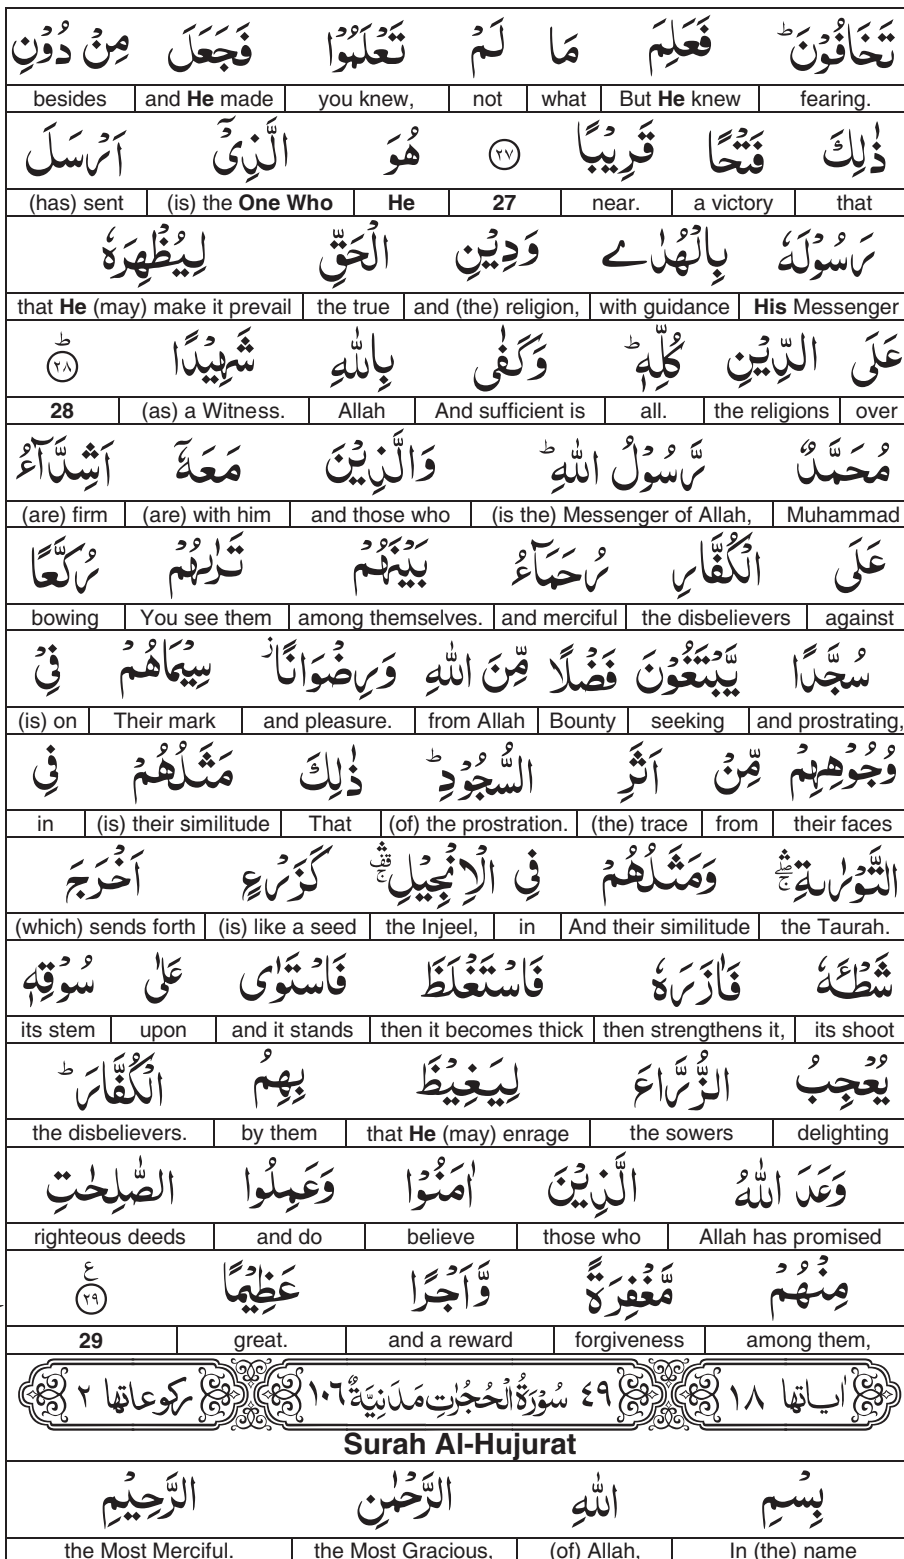 تَخَافُوْنَ ؕ فَعَلِمَ مَا لَمْ تَعْلَمُوْا فَجَعَلَ مِنْ دُوْنِ
fearing. But He knew what not you knew, and He made besides
ذٰلِكَ فَتْحًا قَرِيْبًا ۝٢٧ هُوَ الَّذِيْۤ اَرْسَلَ
that a victory near. 27 He (is) the One Who (has) sent
رَسُوْلَهٗ بِالْهُدٰى وَدِيْنِ الْحَقِّ لِيُظْهِرَهٗ
His Messenger with guidance and (the) religion, the true that He (may) make it prevail
عَلَى الدِّيْنِ كُلِّهٖ ؕ وَكَفٰى بِاللّٰهِ شَهِيْدًا ؕ۝٢٨
over the religions all. And sufficient is Allah (as) a Witness. 28
مُحَمَّدٌ رَّسُوْلُ اللّٰهِ ؕ وَالَّذِيْنَ مَعَهٗۤ اَشِدَّآءُ
Muhammad (is the) Messenger of Allah, and those who (are) with him (are) firm
عَلَى الْكُفَّارِ رُحَمَآءُ بَيْنَهُمْ تَرٰىهُمْ رُكَّعًا
against the disbelievers and merciful among themselves. You see them bowing
سُجَّدًا يَّبْتَغُوْنَ فَضْلًا مِّنَ اللّٰهِ وَرِضْوَانًا ؗ سِيْمَاهُمْ فِيْ
and prostrating, seeking Bounty from Allah and pleasure. Their mark (is) on
وُجُوْهِهِمْ مِّنْ اَثَرِ السُّجُوْدِ ؕ ذٰلِكَ مَثَلُهُمْ فِي
their faces from (the) trace (of) the prostration. That (is) their similitude in
التَّوْرٰىةِ ۛۖۚ وَمَثَلُهُمْ فِي الْاِنْجِيْلِ ۛۚ قف كَزَرْعٍ اَخْرَجَ
the Taurah. And their similitude in the Injeel, (is) like a seed (which) sends forth
شَطْـَٔهٗ فَاٰزَرَهٗ فَاسْتَغْلَظَ فَاسْتَوٰى عَلٰى سُوْقِهٖ
its shoot then strengthens it, then it becomes thick and it stands upon its stem
يُعْجِبُ الزُّرَّاعَ لِيَغِيْظَ بِهِمُ الْكُفَّارَ ؕ
delighting the sowers that He (may) enrage by them the disbelievers.
وَعَدَ اللّٰهُ الَّذِيْنَ اٰمَنُوْا وَعَمِلُوا الصّٰلِحٰتِ
Allah has promised those who believe and do righteous deeds
مِنْهُمْ مَّغْفِرَةً وَّاَجْرًا عَظِيْمًا ۝٢٩ ع
among them, forgiveness and a reward great. 29
اٰياتها ١٨ ٤٩ سُوْرَةُ الْحُجُرٰتِ مَدَنِيَّةٌ ١٠٦ ركوعاتها ٢
Surah Al-Hujurat
بِسْمِ اللّٰهِ الرَّحْمٰنِ الرَّحِيْمِ
In (the) name (of) Allah, the Most Gracious, the Most Merciful.